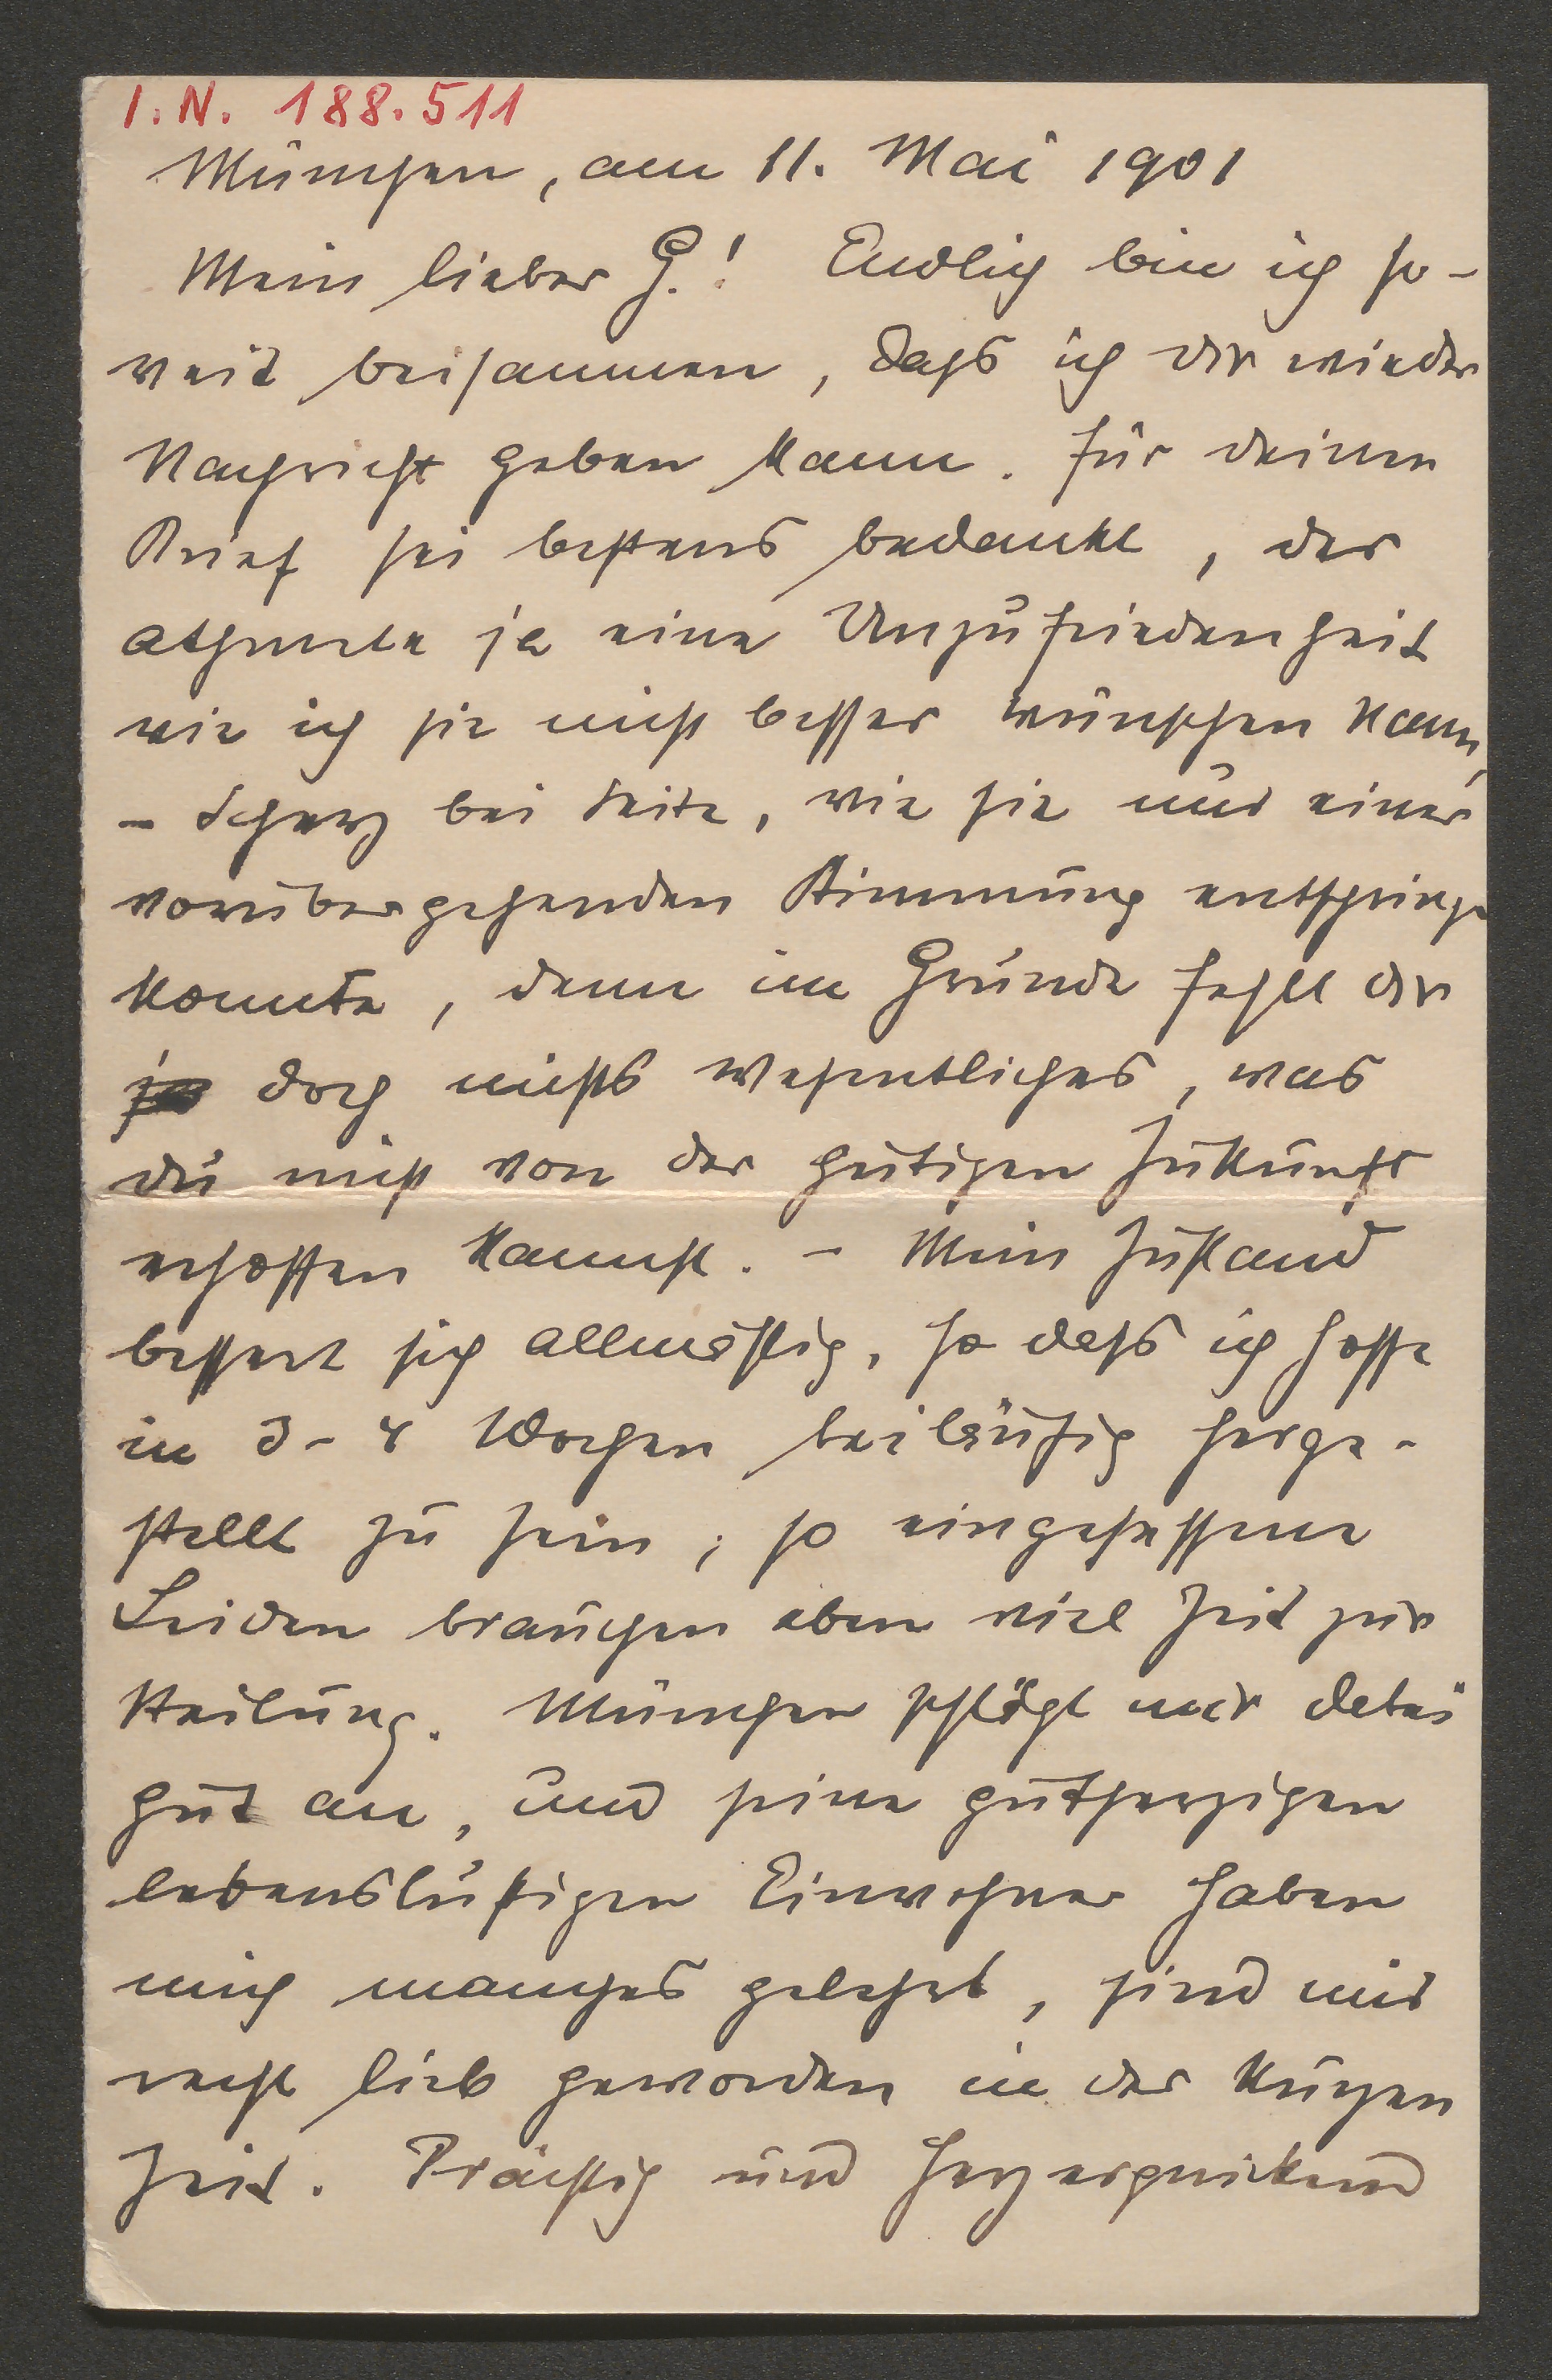 I. N. 188.511
München, am 11. Mai 1901
Mein lieber G.! Endlich bin ich so-
weit beisammen, dass ich dir wieder
Nachricht geben kann. Für deinen
Brief sei bestens bedankt, der
athmete ja eine Unzufriedenheit
wie ich sie nicht besser wünschen kann,
- Scherz bei Seite, wie sie nur einer
vorübergehenden Stimmung entspringen
konnte, denn im Grunde fehlt dir
ja doch nichts wesentliches, was
du nicht von der gütigen Zukunft
erhoffen kannst. - Mein Zustand
bessert sich allmählig, so dass ich hoffe
in 3-4 Wochen beiläufig herge-
stellt zu sein; so eingesessene
Leiden brauchen eben viel Zeit zur
Heilung. München schlägt mir dabei
gut an, und seine gutherzigen
lebenslustigen Einwohner haben
mich manches gelehrt, sind mir
recht lieb geworden in der kurzen
Zeit. Prächtig und herzerquickend